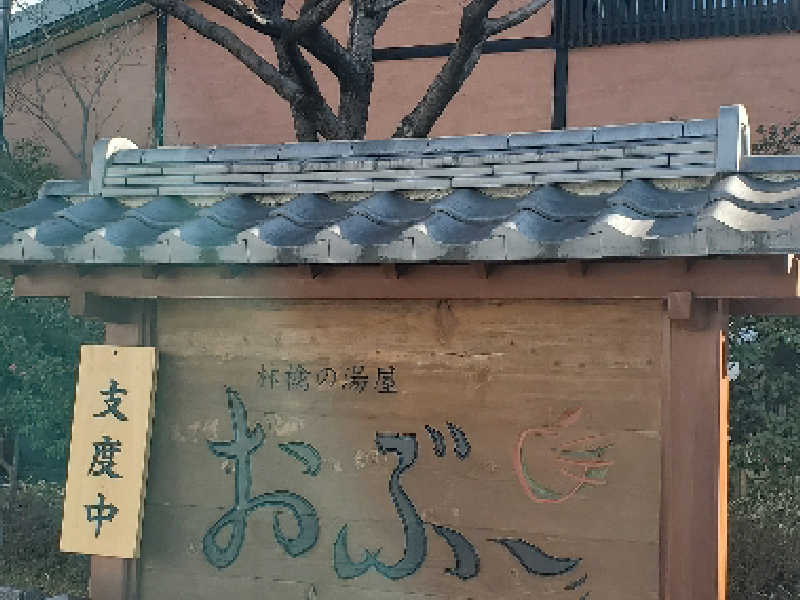 林檎の湯屋
おぶ
支度中